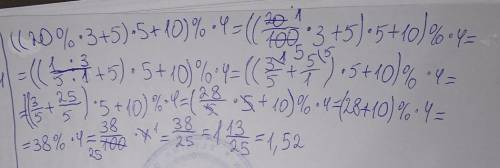 ((20%·3+5)·5+10)%·4=((20/100·3+5)·5+10)%·4=
=((1·3/5·1+5)·5+10)%·4=((3/5+5/1)·5+10)%·4=
=((3/5+25/5)·5+10)%·4=(28/5·5+10)%·4=(28+10)%·4=
=38%·4=38/100·4=38/25=1 13/25=1,52